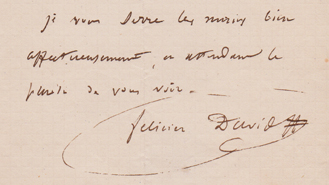 je vous serre les mains bien
affectueusement, en attendant le
plaisir de vous voir.
Felicien David